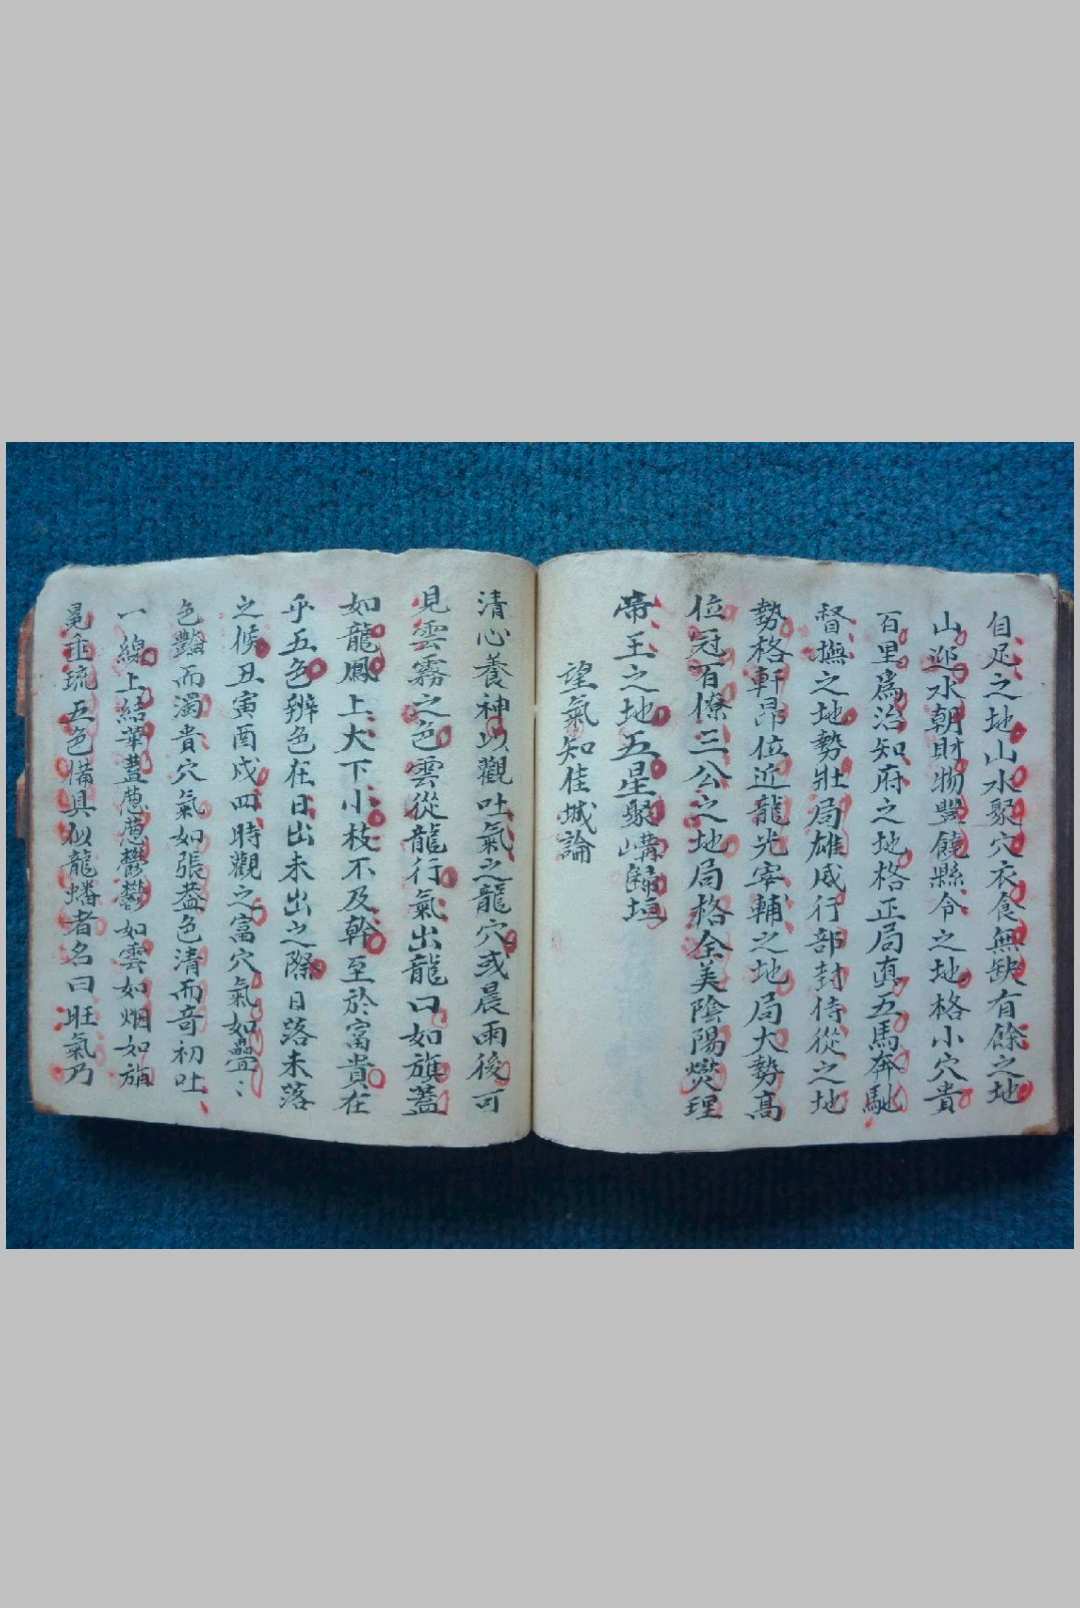 自足之地山水聚穴衣食無缺有餘之地
山迎水朝財物豐饒縣令之地格小穴貴
百里為治知府之地格正局真五馬奔馳
督撫之地勢壯局雄威行部封侍從之地
勢格軒昂位近龍光宰輔之地局大勢高
位冠百僚三公之地局格全美陰陽燮理
帝王之地五星聚講歸垣
望氣知佳城論
清心養神以觀吐氣之龍穴或晨雨後可
見雲霧之色雲從龍行氣出龍口如旗蓋
如龍鳳上大下小枝不及幹至於富貴在
乎五色辨色在日出未出之際日落未落
之候丑寅酉戌四時觀之富穴氣如疊〻
色豔而濁貴穴氣如張蓋色清而奇初吐
一線上結華蓋蔥蔥鬱鬱如雲如烟如旗
冕垂琉五色備具似龍蟠者名曰旺氣乃